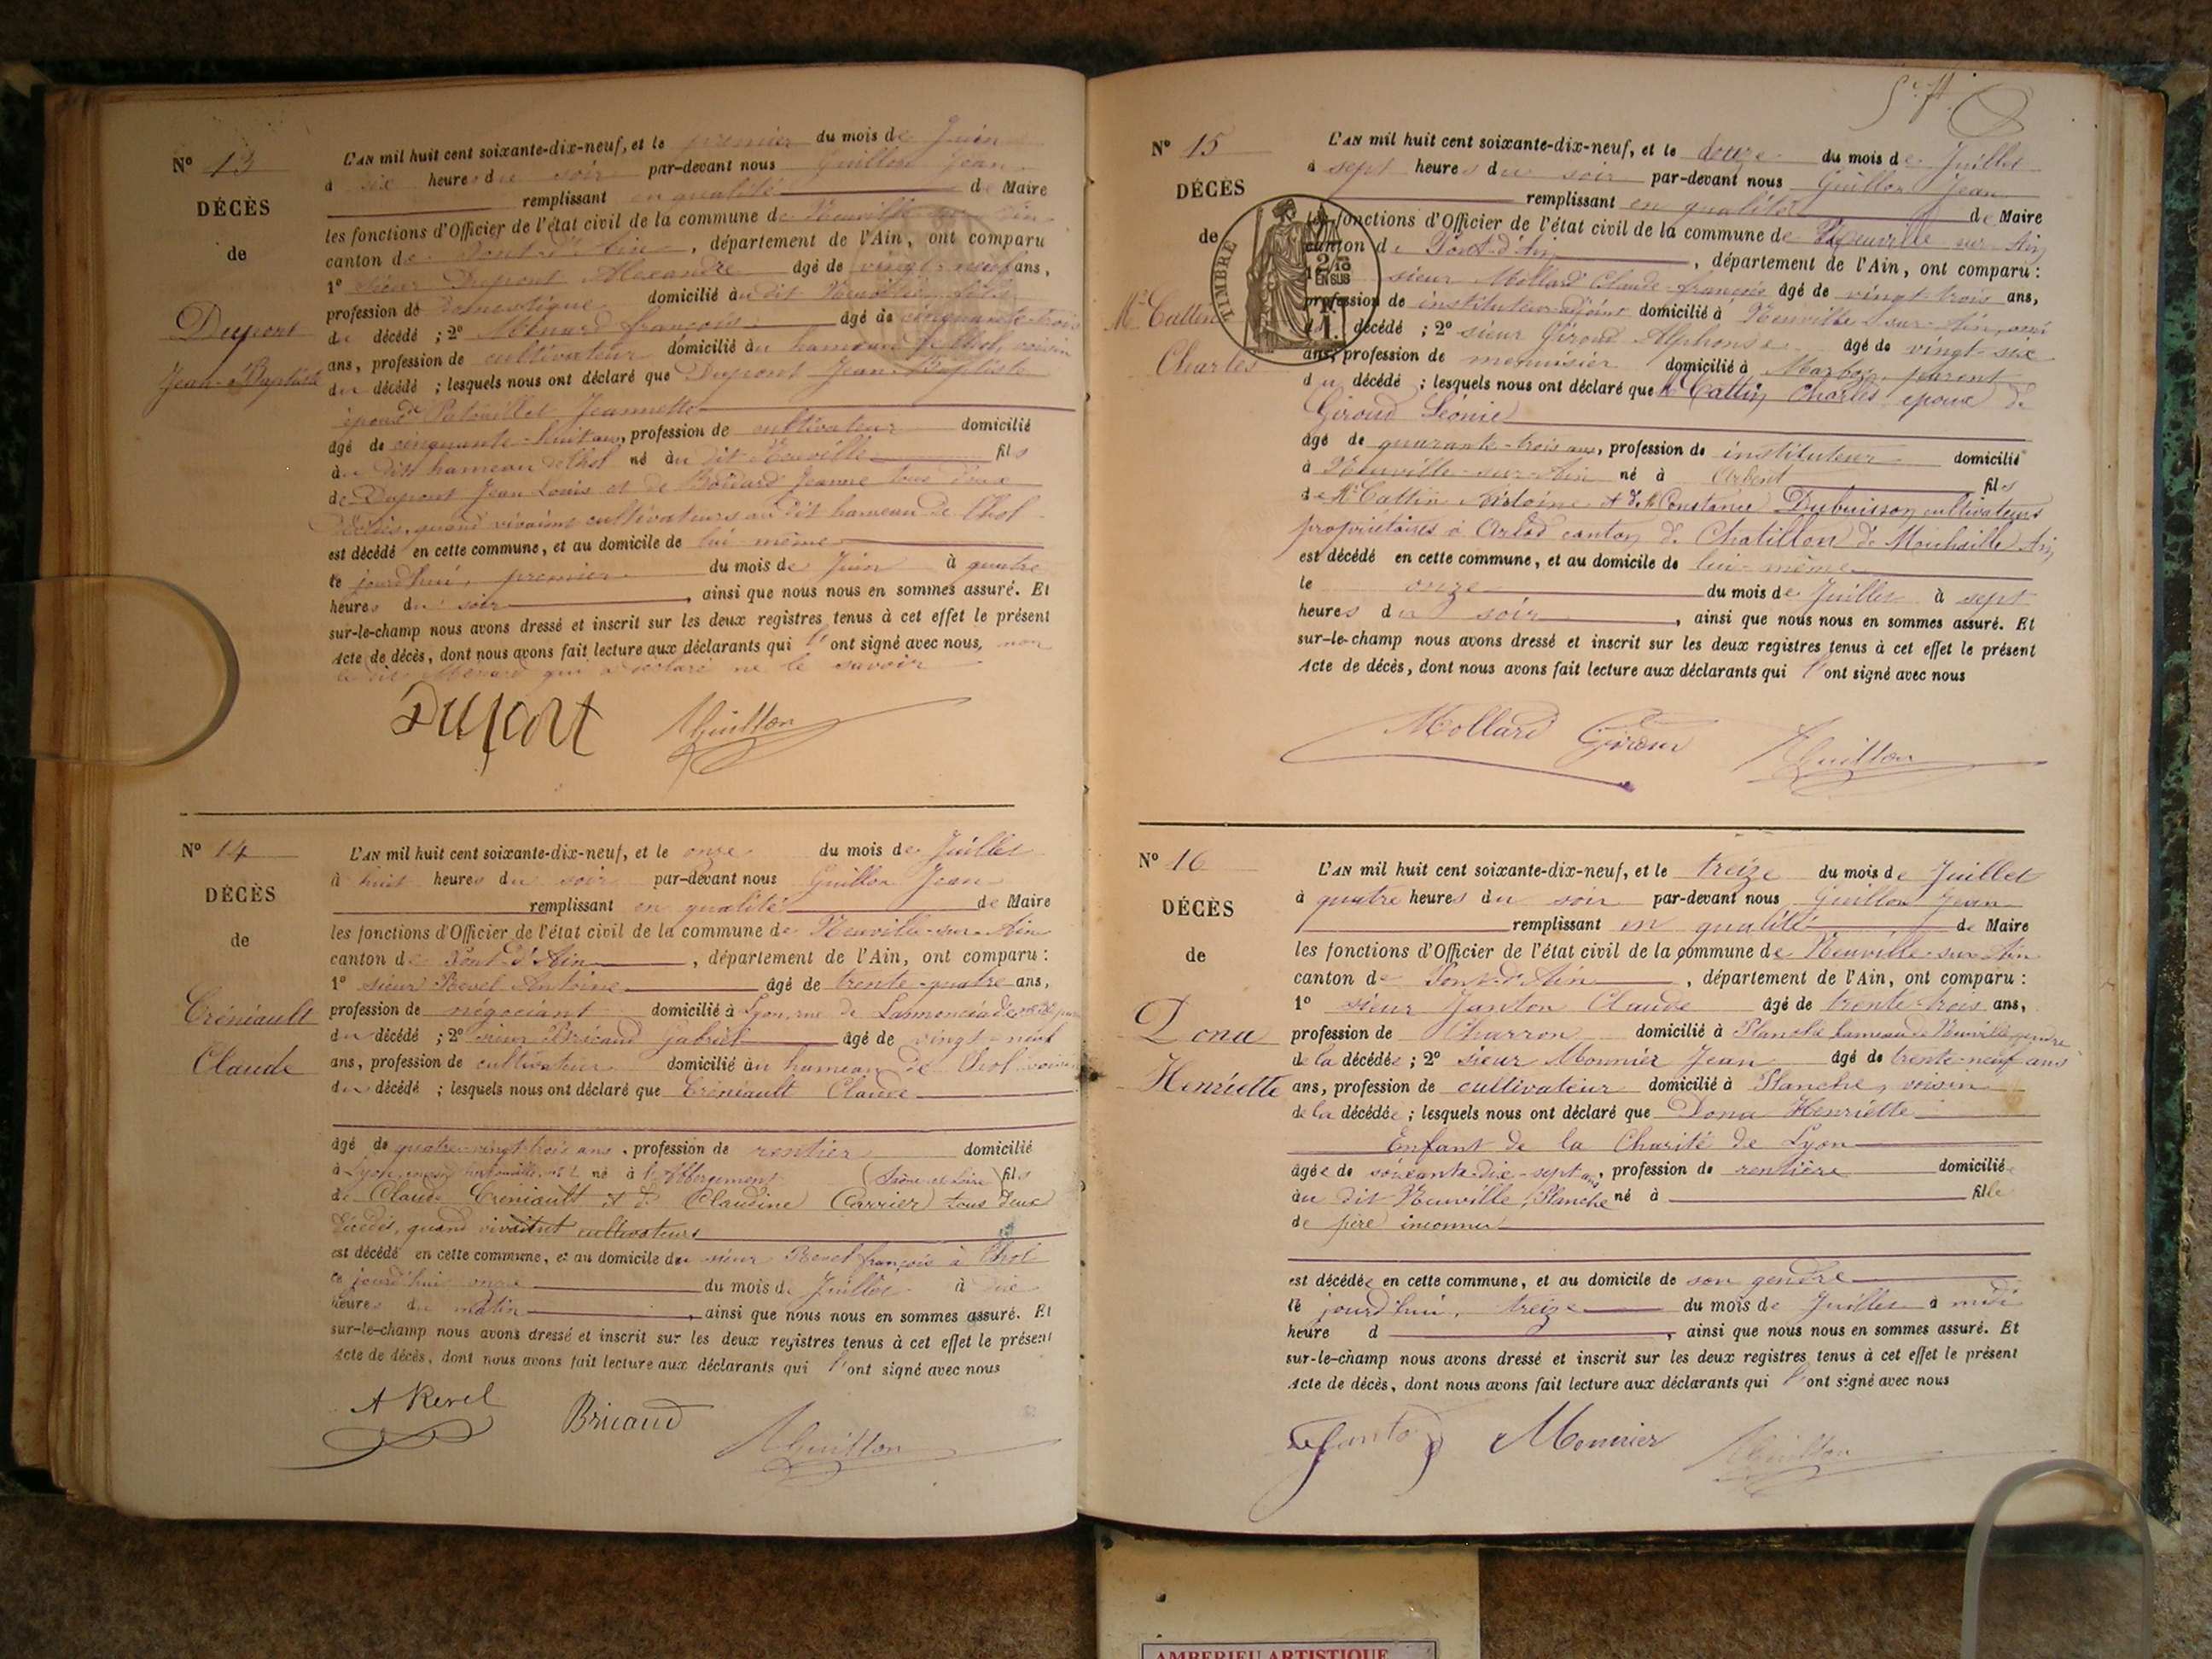 N° 13
DÉCÈS
de
Dupont
Jean-Baptiste
L'AN mil huit cent soixante-dix-neuf, et le premier du mois de Juin
à six heures du soir par-devant nous Guillon Jean
remplissant en qualité de Maire
les fonctions d'Officier de l'état civil de la commune de Neuville sur Ain
canton de Pont d'Ain, département de l'Ain, ont comparu
1° sieur Dupont Alexandre âgé de vingt-neuf ans,
profession de domestique domicilié au dit Neuville, fils
du décédé ; 2° Menard françois âgé de cinquante-trois
ans, profession de cultivateur domicilié au hameau de Thol, voisin
du décédé ; lesquels nous ont déclaré que Dupont Jean-Baptiste
époux de Jeannette
âgé de cinquante-huit ans, profession de cultivateur domicilié
au dit hameau de Thol né au dit Neuville fils
de Dupont Jean Louis et de Jeanne tous deux
décédés, quand vivaient cultivateurs au dit hameau de Thol
est décédé en cette commune, et au domicile de lui même
le jourd'hui, premier du mois de Juin à quatre
heures du soir, ainsi que nous nous en sommes assuré. Et
sur-le-champ nous avons dressé et inscrit sur les deux registres tenus à cet effet le présent
Acte de décès, dont nous avons fait lecture aux déclarants qui l'ont signé avec nous, non
le dit Menard qui a déclaré ne le savoir
Dupont Guillon
N° 14
DÉCÈS
de
Créniault
Claude
L'AN mil huit cent soixante-dix-neuf, et le onze du mois de Juillet
à huit heures du soir par-devant nous Guillon Jean
remplissant en qualité de Maire
les fonctions d'Officier de l'état civil de la commune de Neuville-sur-Ain
canton de Pont-d'Ain, département de l'Ain, ont comparu :
1° sieur Revel Antoine âgé de trente-quatre ans,
profession de négociant domicilié à Lyon, rue de
du décédé ; 2° sieur Bricaud Gabriel âgé de vingt-neuf
ans, profession de cultivateur domicilié au hameau de Thol voisin
du décédé ; lesquels nous ont déclaré que Créniault Claude
âgé de quatre-vingt-trois ans, profession de rentier domicilié
à Lyon né à l'Abbergement (Saône et Loire) fils
de Claude Créniault et de Claudine Carrier tous deux
décédés, quand vivaient cultivateurs
est décédé en cette commune, et au domicile du sieur Revel françois à Thol
ce jourd'hui onze du mois de Juillet à dix
heures du matin, ainsi que nous nous en sommes assuré. Et
sur-le-champ nous avons dressé et inscrit sur les deux registres tenus à cet effet le présent
Acte de décès, dont nous avons fait lecture aux déclarants qui l'ont signé avec nous
A Revel Bricaud Guillon
N° 15
DÉCÈS
de
Mr Cattin
Charles
TIMBRE
2/10
EN SUS
L'AN mil huit cent soixante-dix-neuf, et le douze du mois de Juillet
à sept heures du soir par-devant nous Guillon Jean
remplissant en qualité de Maire
les fonctions d'Officier de l'état civil de la commune de Neuville sur Ain
canton de Pont-d'Ain, département de l'Ain, ont comparu :
1° sieur Mollard Claude-françois âgé de vingt-trois ans,
profession de instituteur-adjoint domicilié à Neuville-sur-Ain, ami
du décédé ; 2° sieur Giroud Alphonse âgé de vingt-six
ans, profession de menuisier domicilié à Marboz, parent
du décédé ; lesquels nous ont déclaré que Mr Cattin Charles époux de
Giroud Léonie
âgé de quarante-trois ans, profession de instituteur domicilié
à Neuville-sur-Ain né à Arbent fils
de Mr Cattin Antoine et de Me Constance Dubuisson cultivateurs
propriétaires à Arlod canton de Chatillon de Michaille Ain
est décédé en cette commune, et au domicile de lui-même
le onze du mois de Juillet à sept
heures du soir, ainsi que nous nous en sommes assuré. Et
sur-le-champ nous avons dressé et inscrit sur les deux registres tenus à cet effet le présent
Acte de décès, dont nous avons fait lecture aux déclarants qui l'ont signé avec nous
Mollard Giroud Guillon
N° 16
DÉCÈS
de
Dona
Henriette
L'AN mil huit cent soixante-dix-neuf, et le treize du mois de Juillet
à quatre heures du soir par-devant nous Guillon Jean
remplissant en qualité de Maire
les fonctions d'Officier de l'état civil de la commune de Neuville-sur-Ain
canton de Pont-d'Ain, département de l'Ain, ont comparu :
1° sieur Janton Claude âgé de trente-trois ans,
profession de Charron domicilié à Planche hameau de Neuville gendre
de la décédée ; 2° sieur Monnier Jean âgé de trente-neuf ans
ans, profession de cultivateur domicilié à Planche, voisin
de la décédée ; lesquels nous ont déclaré que Dona Henriette
Enfant de la Charité de Lyon
âgée de soixante-dix-sept ans, profession de rentière domiciliée
au dit Neuville, Planche né à fille
de père inconnu
est décédée en cette commune, et au domicile de son gendre
le jourd'hui, treize du mois de Juillet à midi
heure d, ainsi que nous nous en sommes assuré. Et
sur-le-champ nous avons dressé et inscrit sur les deux registres tenus à cet effet le présent
Acte de décès, dont nous avons fait lecture aux déclarants qui l'ont signé avec nous
Janton Monnier Guillon
AMBERIEU ARTISTIQUE